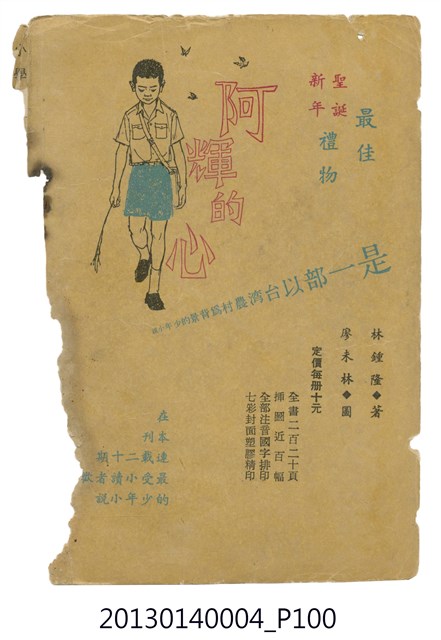 小學
最佳
聖誕
新年
禮物
阿輝的心
是一部以台湾農村爲背景的少年小說
林鍾隆◆著
廖未林◆圖
定價每册十元
全書二百二十頁
揷圖近百幅
全部注音國字排印
七彩封面塑膠精印
在本刊
連載二十期
最受小讀者歡
的少年小說
20130140004_P100